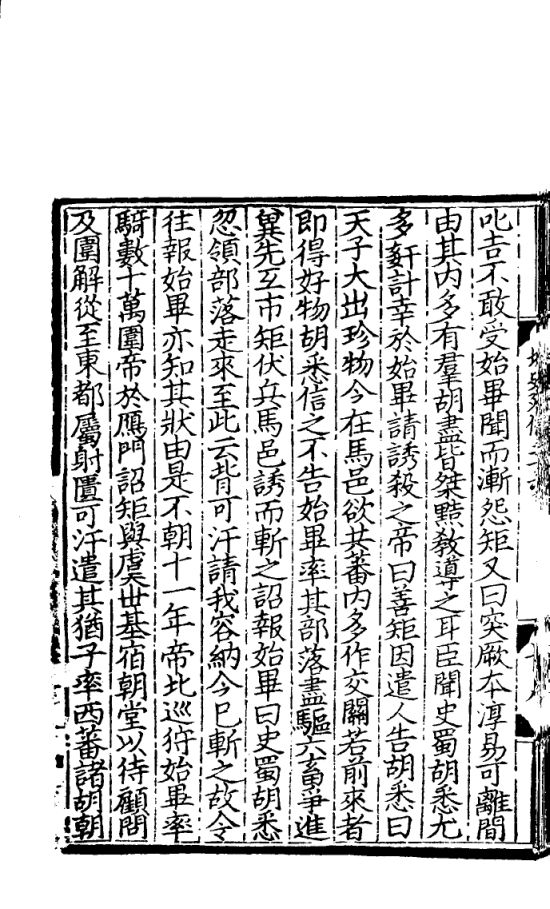 叱吉不敢受始畢聞而漸怨矩又曰突厥本淳易可離間
由其内多有羣胡盡皆桀黠敎導之耳臣聞史蜀胡悉尤
多姧計幸於始畢請誘殺之帝曰善矩因遣人告胡悉曰
天子大出珍物今在馬邑欲共蕃内多作交關若前來者
即得好物胡悉信之不告始畢率其部落盡驅六畜爭進
兾先互市矩伏兵馬邑誘而斬之詔報始畢曰史蜀胡悉
忽領部落走來至此云背可汗請我容納今已斬之故令
往報始畢亦知其狀由是不朝十一年帝北巡狩始畢率
騎數十萬圍帝於鴈門詔矩與虞丗基宿朝堂以待顧問
及圍解從至東都屬射匱可汗遣其猶子率西蕃諸胡朝